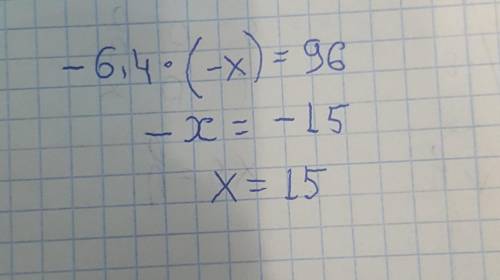 -6,4·(-x)=96
-x=-15
x=15